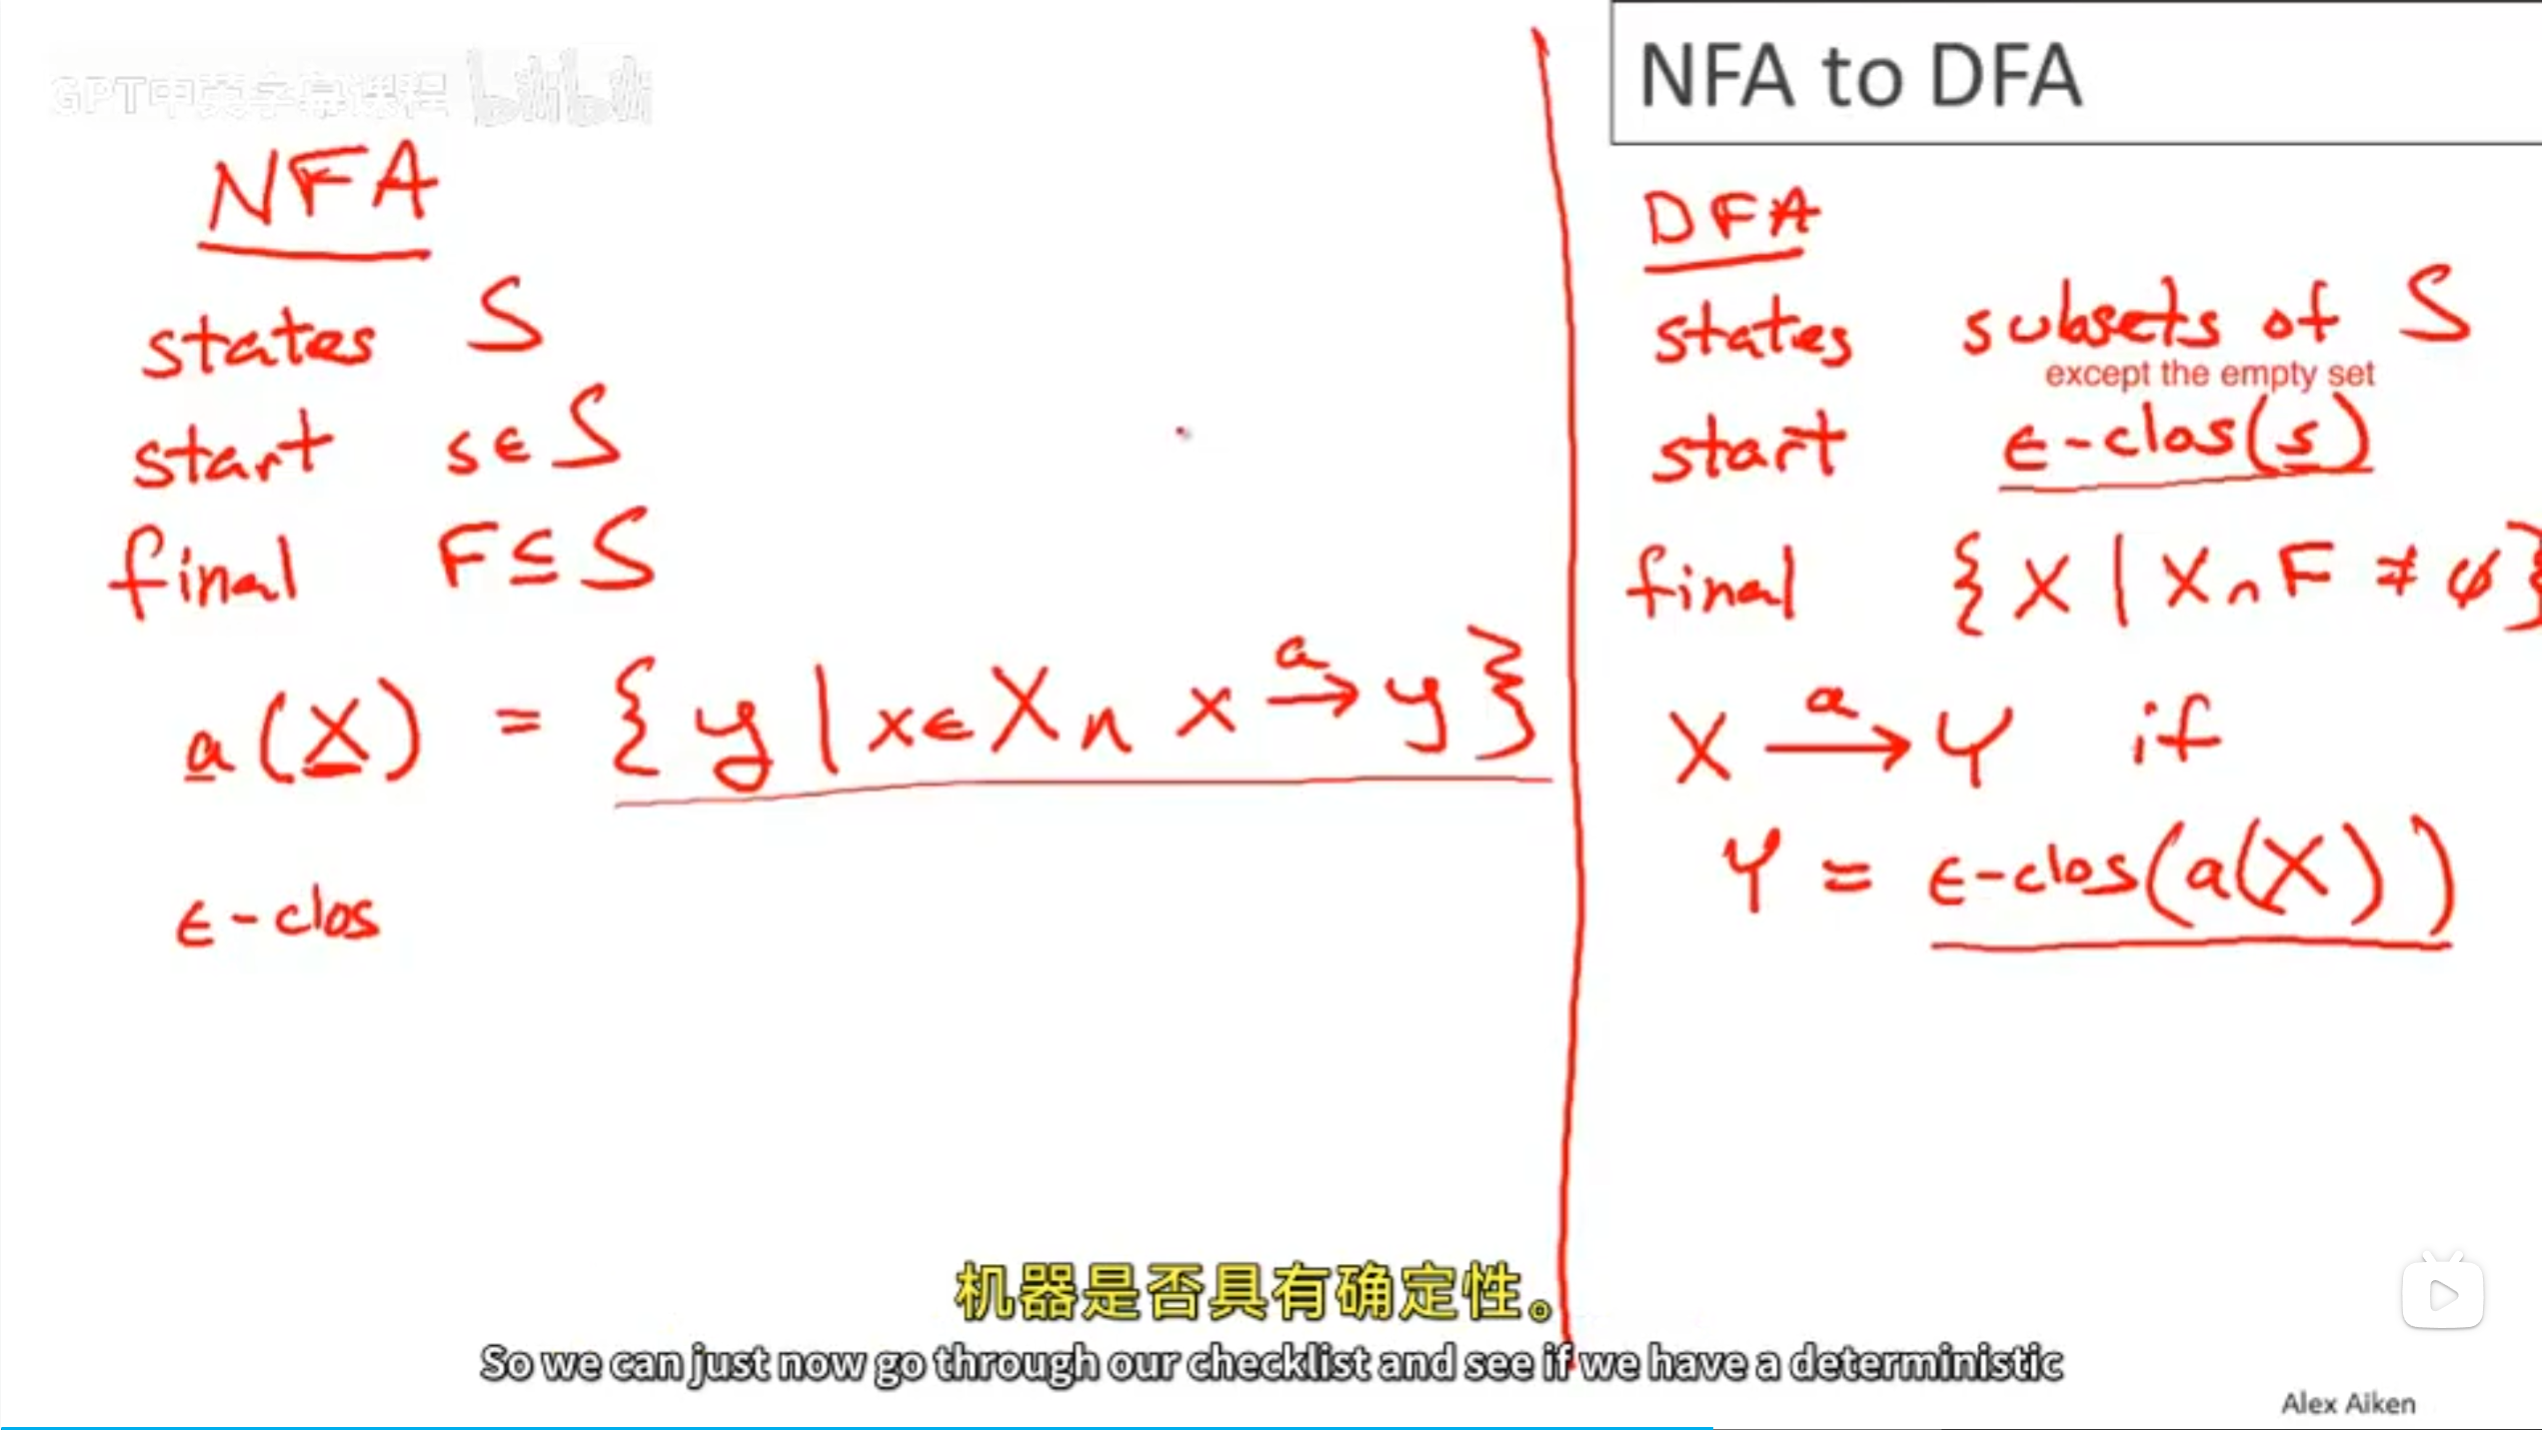 GPT中英字幕课程 bilibili
NFA to DFA
NFA
states S
start s∈S
final F⊆S
a(X) = {y | x∈X ∧ x →a y}
ϵ-clos
DFA
states subsets of S
except the empty set
start ϵ-clos(s)
final {X | X∩F ≠ ϕ}
X →a Y if
Y = ϵ-clos(a(X))
机器是否具有确定性。
So we can just now go through our checklist and see if we have a deterministic
Alex Aiken